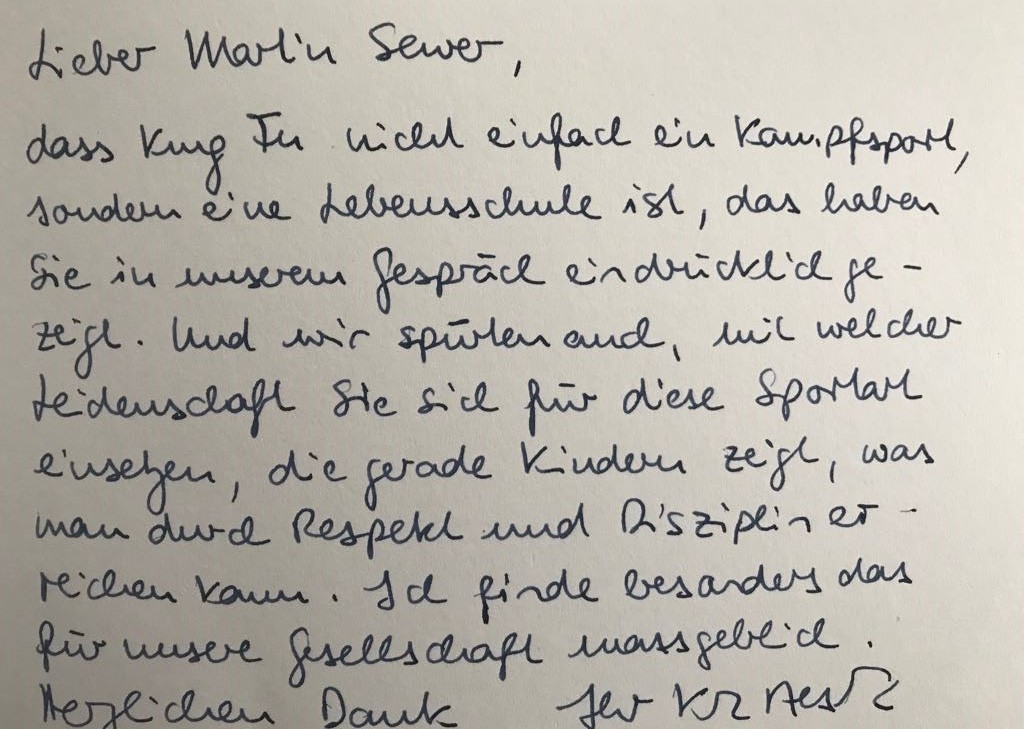 Lieber Martin Sewer,
dass Kung Fu nicht einfach ein Kampfsport,
sondern eine Lebensschule ist, das haben
Sie in unserem Gespräch eindrücklich ge-
zeigt. Und wir spürten auch, mit welcher
Leidenschaft Sie sich für diese Sportart
einsetzen, die gerade Kindern zeigt, was
man durch Respekt und Disziplin er-
reichen kann. Ich finde besonders das
für unsere Gesellschaft massgeblich.
Herzlichen Dank